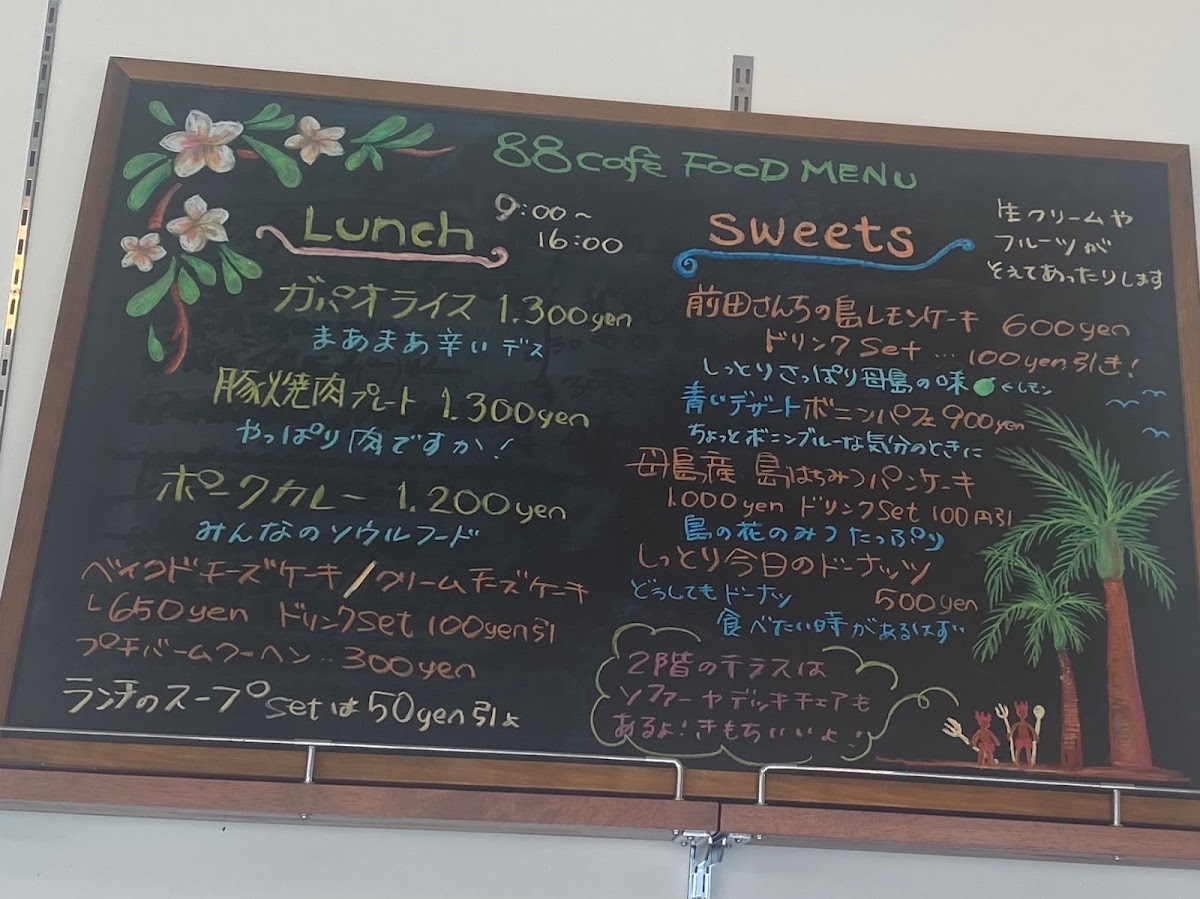 88 Café FOOD MENU
Lunch
9:00〜
16:00
ガパオライス 1.300yen
まあまあ辛いデス
豚焼肉プレート 1.300yen
やっぱり肉ですか!
ポークカレー 1.200yen
みんなのソウルフード
ベイクドチーズケーキ/クリームチーズケーキ
└650yen ドリンクSet 100yen引
プチバームクーヘン‥300yen
ランチのスープSetは50yen引よ
Sweets
生クリームや
フルーツが
そえてあったりします
前田さんちの島レモンケーキ 600yen
ドリンクSet…100yen引き!
しっとりさっぱり母島の味 ←レモン
青いデザートボニンパフェ900yen
ちょっとボニンブルーな気分のときに
母島産 島はちみつパンケーキ
1.000yen ドリンクSet 100円引
島の花のみつたっぷり
しっとり今日のドーナッツ
500yen
どうしてもドーナツ
食べたい時があるはず
2階のテラスは
ソファーやデッキチェアも
あるよ!きもちいいよ!